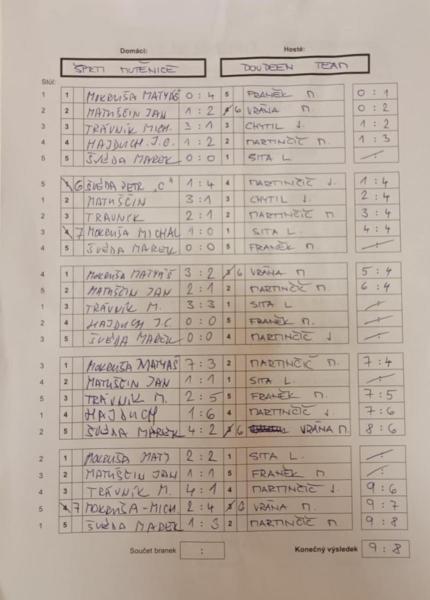 Domácí: Hosté:
ŠPRTI MUTĚNICE DOUDEEN TEAM
Stůl:
1 1 MOKRUŠA MATYÁŠ 0 : 4 5 FRANĚK M. 0 : 1
2 2 MATUŠČIN JAN 1 : 2 6 VRÁNA M. 0 : 2
3 3 TRÁVNÍK MICH. 3 : 1 3 CHYTIL J. 1 : 2
4 4 HAJDUCH J.C. 1 : 2 2 MARTINČIČ M. 1 : 3
5 5 ŠVÉDA MAREK 0 : 0 1 SITA L.
5 6 ŠVÉDA PETR "C" 1 : 4 4 MARTINČIČ J. 1 : 4
1 2 MATUŠČIN 3 : 1 3 CHYTIL J. 2 : 4
2 3 TRÁVNÍK 2 : 1 2 MARTINČIČ M. 3 : 4
3 7 MOKRUŠA MICHAL 1 : 0 1 SITA L. 4 : 4
4 5 ŠVÉDA MAREK 0 : 0 5 FRANĚK M.
4 1 MOKRUŠA MATYÁŠ 3 : 2 6 VRÁNA M. 5 : 4
5 2 MATUŠČIN JAN 2 : 1 2 MARTINČIČ M. 6 : 4
1 3 TRÁVNÍK M. 3 : 3 1 SITA L.
2 4 HAJDUCH J.C. 0 : 0 5 FRANĚK M.
3 5 ŠVÉDA MAREK 0 : 0 4 MARTINČIČ J.
3 1 MOKRUŠA MATYÁŠ 7 : 3 2 MARTINČIČ M. 7 : 4
4 2 MATUŠČIN JAN 1 : 1 1 SITA L.
5 3 TRÁVNÍK M. 2 : 5 5 FRANĚK M. 7 : 5
1 4 HAJDUCH 1 : 6 4 MARTINČIČ J. 7 : 6
2 5 ŠVÉDA MAREK 4 : 2 6 VRÁNA M. 8 : 6
2 1 MOKRUŠA MATY 2 : 2 1 SITA L.
3 2 MATUŠČIN JAN 1 : 1 5 FRANĚK M.
4 3 TRÁVNÍK M. 4 : 1 4 MARTINČIČ J. 9 : 6
5 7 MOKRUŠA - MICH. 2 : 4 VRÁNA M. 9 : 7
1 5 ŠVÉDA MAREK 1 : 3 2 MARTINČIČ M. 9 : 8
Součet branek : Konečný výsledek 9 : 8